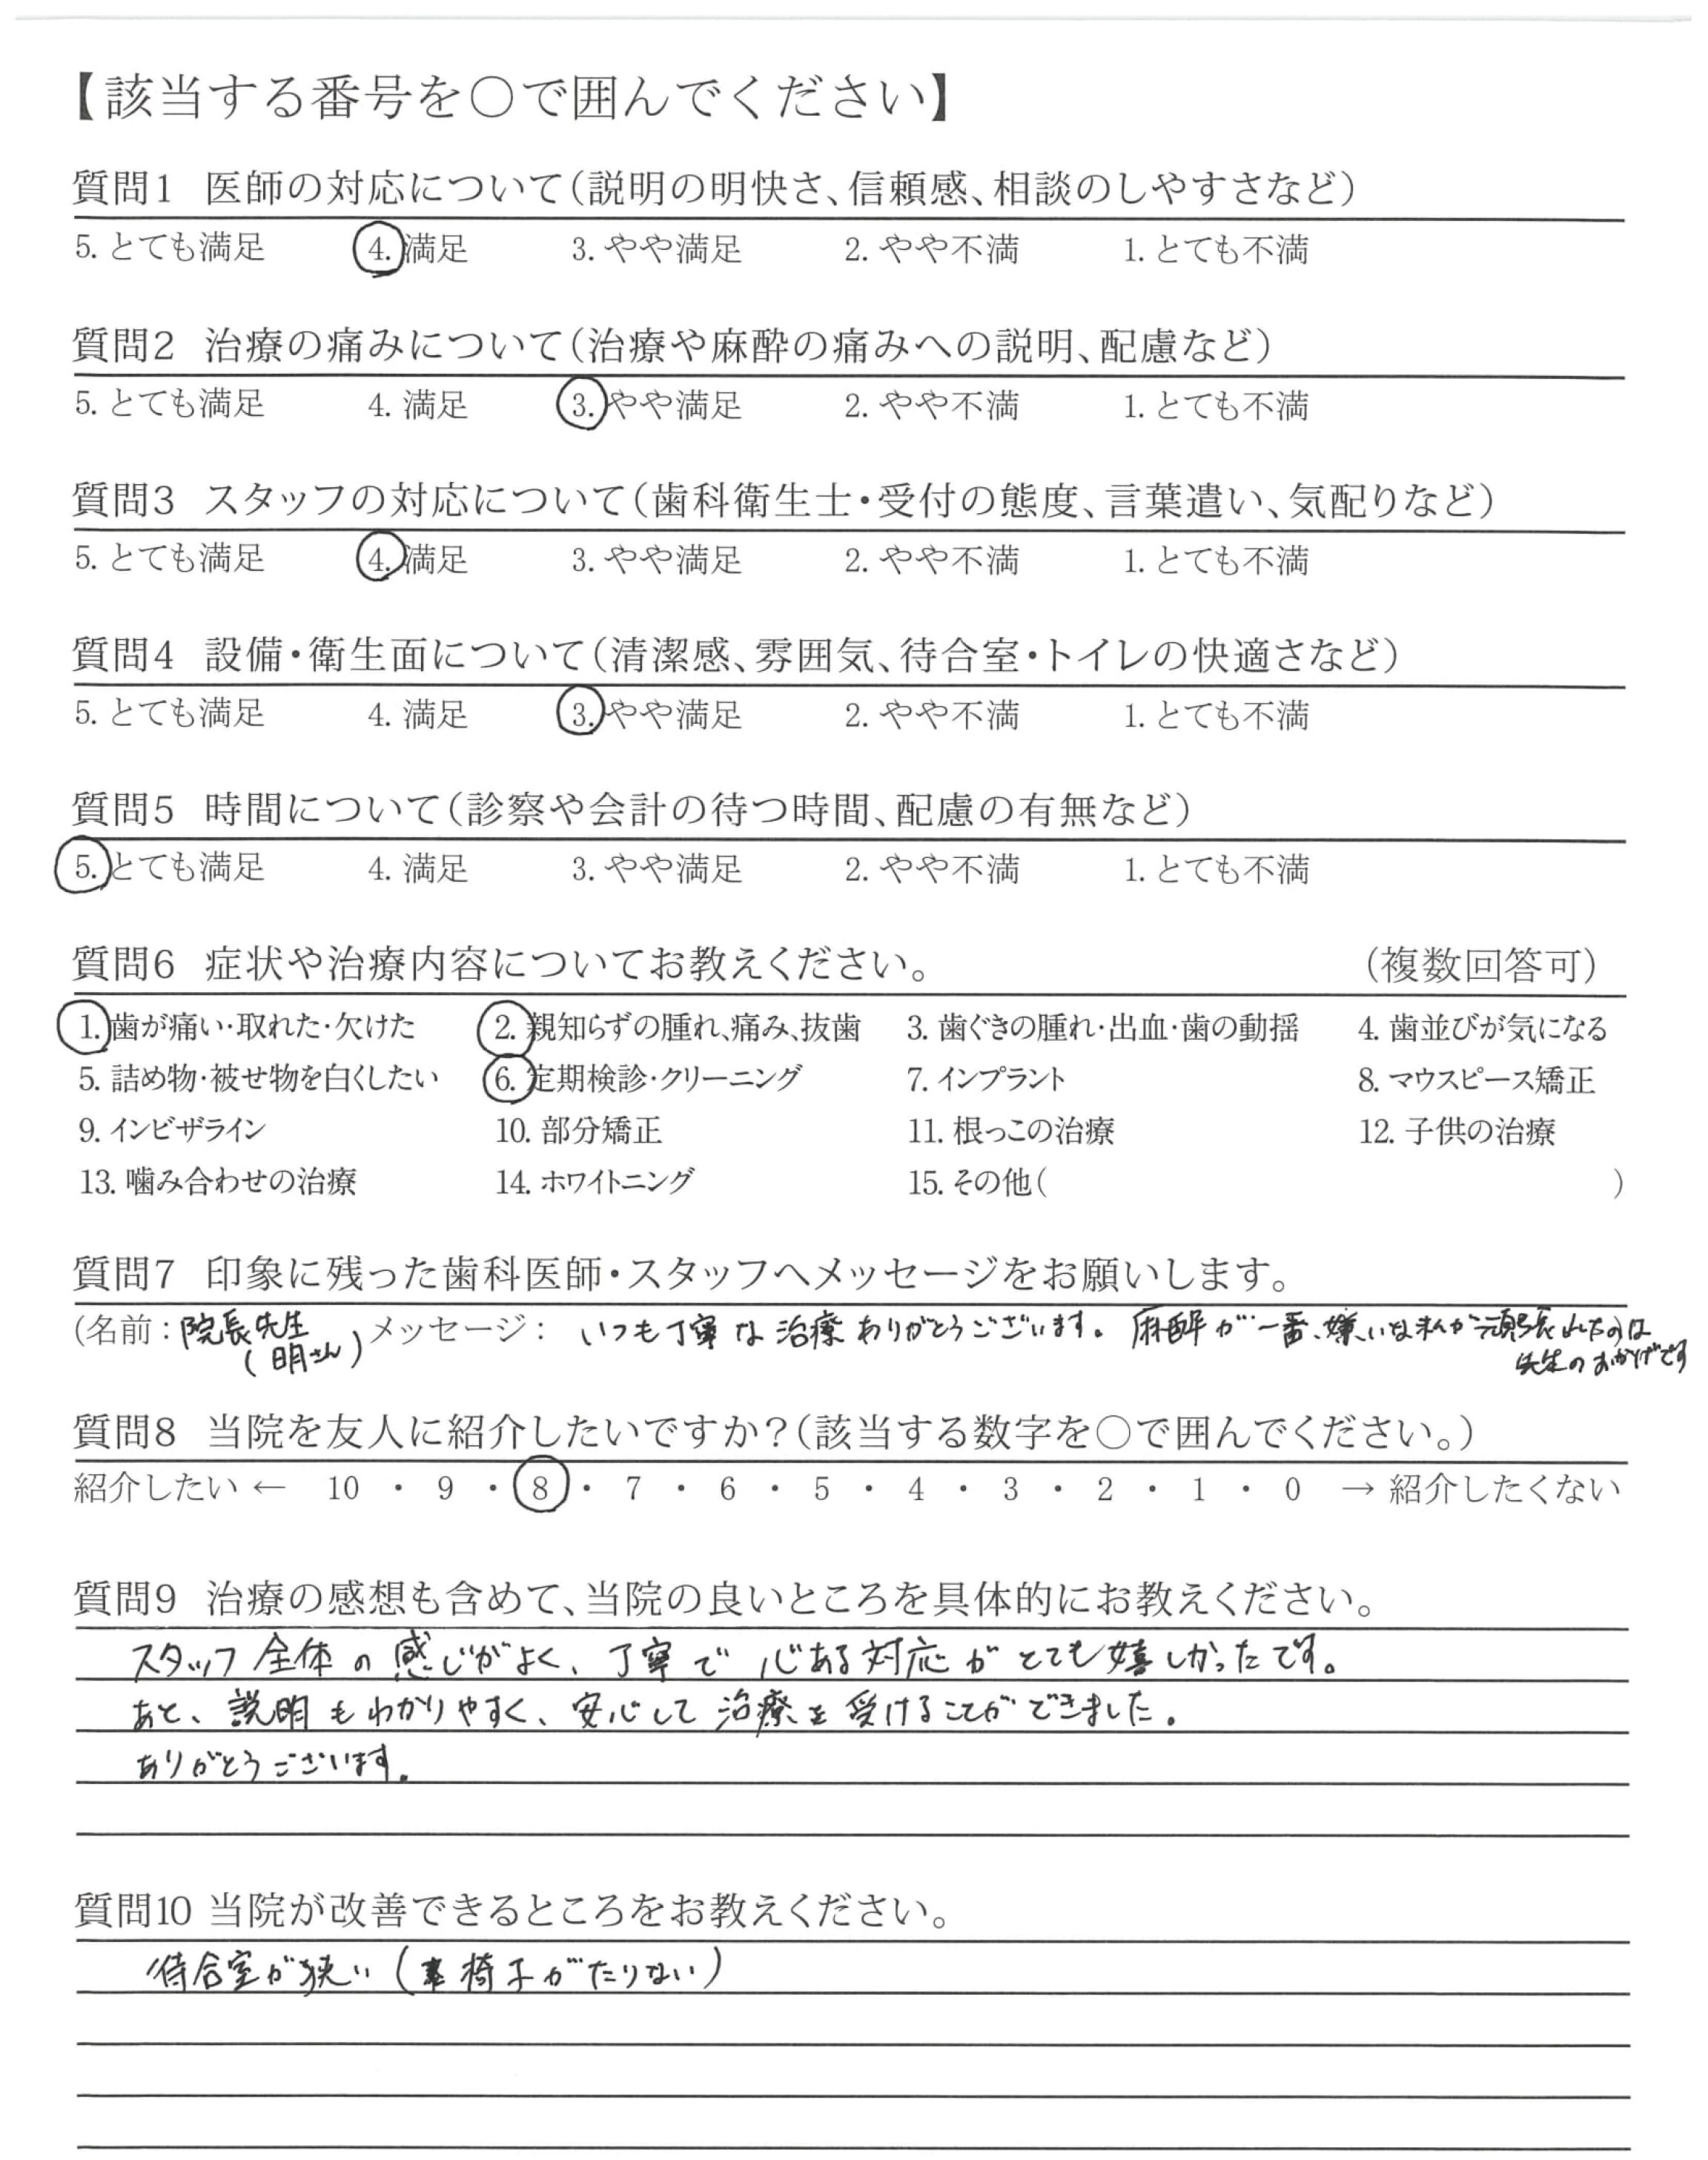 【該当する番号を○で囲んでください】
質問1 医師の対応について(説明の明快さ、信頼感、相談のしやすさなど)
5. とても満足 4. 満足 3. やや満足 2. やや不満 1. とても不満
質問2 治療の痛みについて(治療や麻酔の痛みへの説明、配慮など)
5. とても満足 4. 満足 3. やや満足 2. やや不満 1. とても不満
質問3 スタッフの対応について(歯科衛生士・受付の態度、言葉遣い、気配りなど)
5. とても満足 4. 満足 3. やや満足 2. やや不満 1. とても不満
質問4 設備・衛生面について(清潔感、雰囲気、待合室・トイレの快適さなど)
5. とても満足 4. 満足 3. やや満足 2. やや不満 1. とても不満
質問5 時間について(診察や会計の待つ時間、配慮の有無など)
5. とても満足 4. 満足 3. やや満足 2. やや不満 1. とても不満
質問6 症状や治療内容についてお教えください。 (複数回答可)
1. 歯が痛い・取れた・欠けた 2. 親知らずの腫れ、痛み、抜歯 3. 歯ぐきの腫れ・出血・歯の動揺 4. 歯並びが気になる
5. 詰め物・被せ物を白くしたい 6. 定期検診・クリーニング 7. インプラント 8. マウスピース矯正
9. インビザライン 10. 部分矯正 11. 根っこの治療 12. 子供の治療
13. 噛み合わせの治療 14. ホワイトニング 15. その他( )
質問7 印象に残った歯科医師・スタッフへメッセージをお願いします。
(名前: 院長先生 メッセージ: いつも丁寧な治療ありがとうございます。麻酔が一番、嫌いな私が頑張れたのは
(明さん) 先生のおかげです
質問8 当院を友人に紹介したいですか?(該当する数字を○で囲んでください。)
紹介したい ← 10 ・ 9 ・ 8 ・ 7 ・ 6 ・ 5 ・ 4 ・ 3 ・ 2 ・ 1 ・ 0 → 紹介したくない
質問9 治療の感想も含めて、当院の良いところを具体的にお教えください。
スタッフ全体の感じがよく、丁寧で心ある対応がとても嬉しかったです。
あと、説明もわかりやすく、安心して治療を受けることができました。
ありがとうございます。
質問10 当院が改善できるところをお教えください。
待合室が狭い(椅子がたりない)